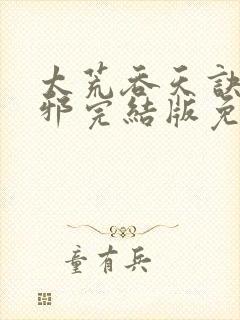 大荒吞天訣
邪完結版免
童有兵